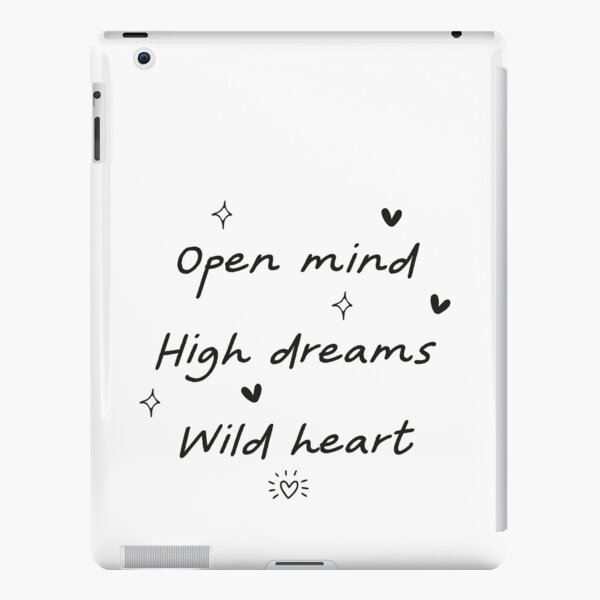 Open mind
High dreams
Wild heart